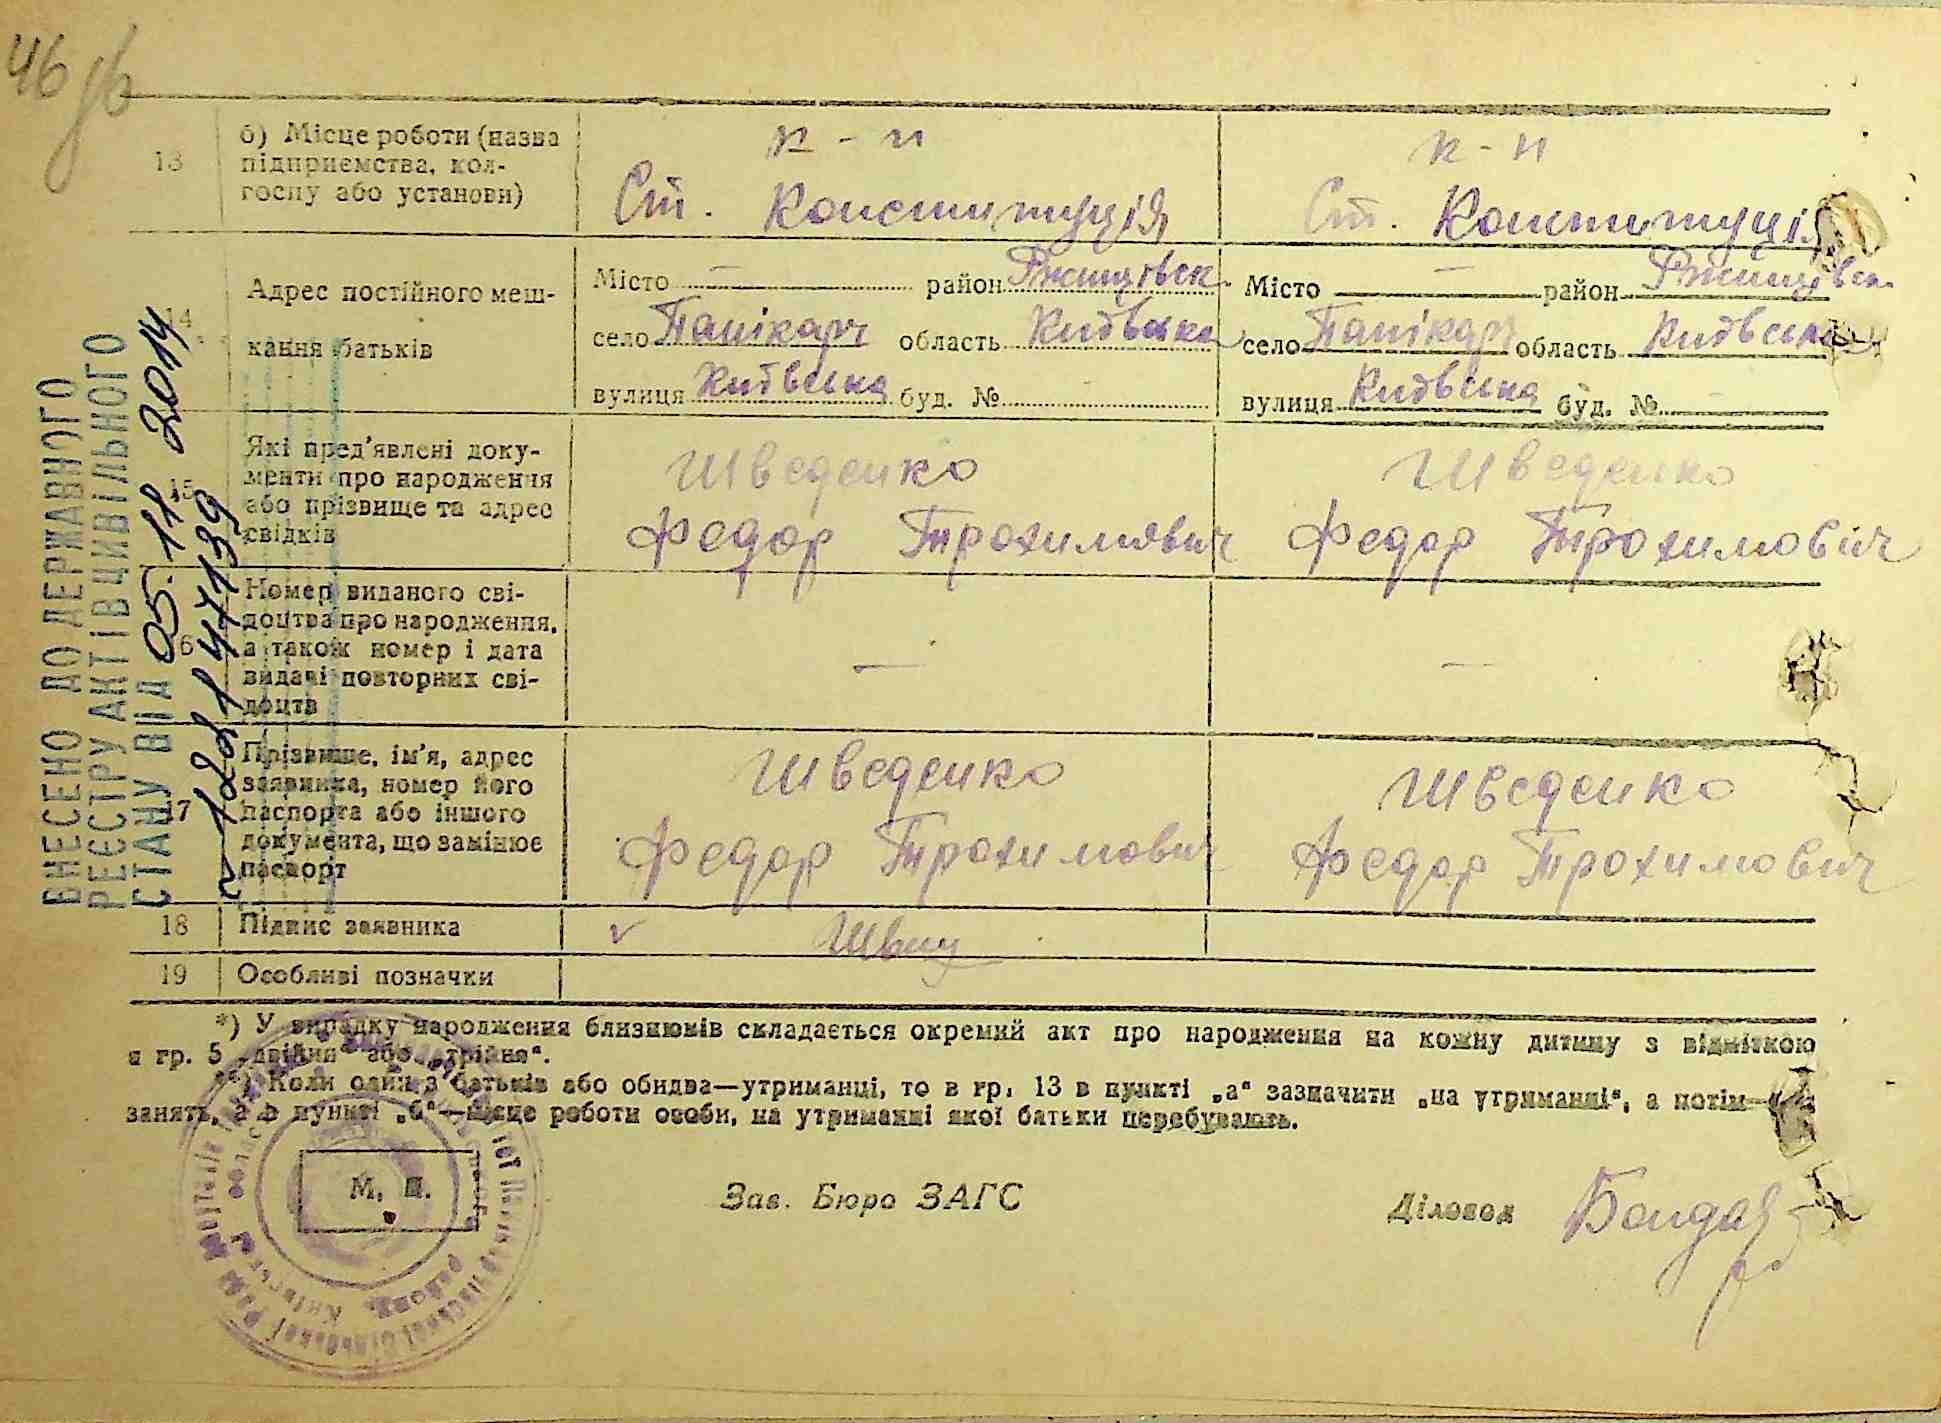 46 зв
13
б) Місце роботи (назва
підприємства, кол-
госпу або установи)
к - п
Ст. Конституція
к - п
Ст. Конституція
14
Адрес постійного меш-
кання батьків
Місто — район Ржищівськ.
село Папікарч область Київська
вулиця Київська буд. №
Місто — район Ржищівськ.
село Папікарч область Київська
вулиця Київська буд. № —
15
Які пред'явлені доку-
менти про народження
або прізвище та адрес
свідків
Шведенко
Федор Трохимович
Шведенко
Федор Трохимовіч
16
Номер виданого сві-
доцтва про народження,
а також номер і дата
видачі повторних сві-
доцтв
—
—
17
Прізвище, ім'я, адрес
заявника, номер його
паспорта або іншого
документа, що замінює
паспорт
Шведенко
Федор Трохимович
Шведенко
Федор Трохимович
18
Підпис заявника
19
Особливі позначки
*) У випадку народження близнюків складається окремий акт про народження на кожну дитину з відміткою
в гр. 5 „двійня“ або „трійня“.
**) Коли один з батьків або обидва—утриманці, то в гр. 13 в пункті „а“ зазначити „на утриманні“, а потім—
занять, а в пункті „б“—місце роботи особи, на утриманні якої батьки перебувають.
М. П.
Зав. Бюро ЗАГС
Діловод
ВНЕСЕНО ДО ДЕРЖАВНОГО
РЕЄСТРУ АКТІВ ЦИВІЛЬНОГО
СТАНУ ВІД 05.11 2014